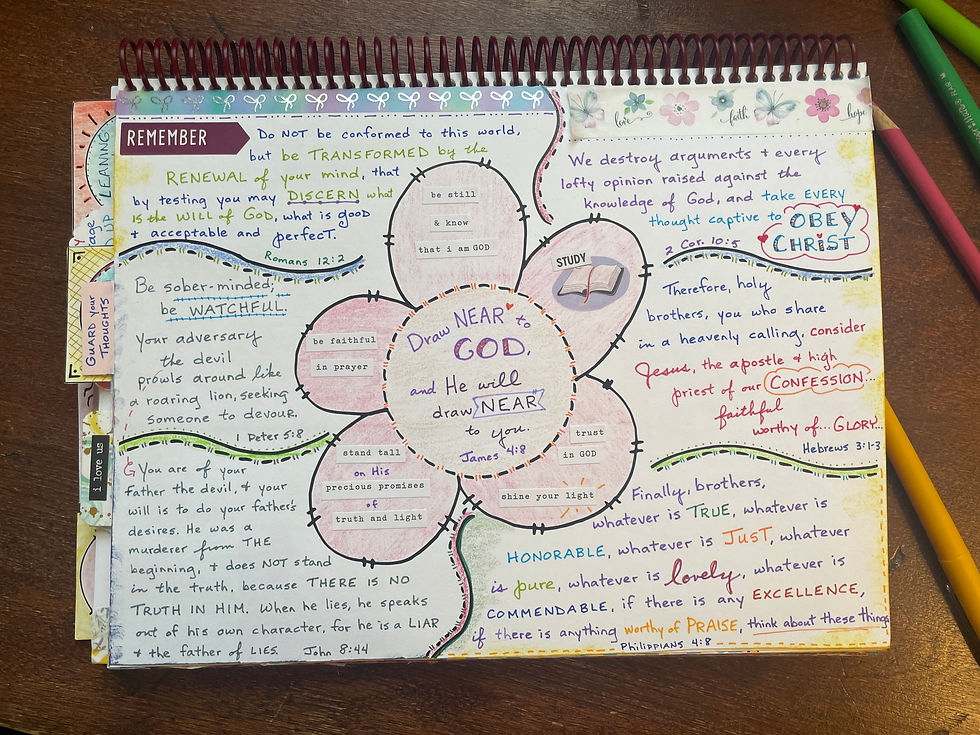 REMEMBER
Do NOT be conformed to this world,
but be TRANSFORMED by the
RENEWAL of your mind, that
by testing you may DISCERN what
is the WILL of God, what is good
+ acceptable and perfect.
Romans 12:2
Be sober-minded;
be WATCHFUL.
Your adversary
the devil
prowls around like
a roaring lion, seeking
someone to devour.
1 Peter 5:8
You are of your
father the devil, + your
will is to do your father's
desires. He was a
murderer from THE
beginning, + does NOT stand
in the truth, because THERE IS NO
TRUTH IN HIM. When he lies, he speaks
out of his own character, for he is a LIAR
+ the father of LIES. John 8:44
be still
& know
that i am GOD
STUDY
be faithful
in prayer
Draw NEAR to
GOD,
and He will
draw NEAR
to you.
James 4:8
stand tall
on His
precious promises
of
truth and light
trust
in GOD
shine your light
love
faith
hope
We destroy arguments + every
lofty opinion raised against the
knowledge of God, and take EVERY
thought captive to OBEY
CHRIST
2 Cor. 10:5
Therefore, holy
brothers, you who share
in a heavenly calling, consider
Jesus, the apostle + high
priest of our CONFESSION...
faithful
worthy of... GLORY...
Hebrews 3:1-3
Finally, brothers,
whatever is TRUE, whatever is
HONORABLE, whatever is JUST, whatever
is pure, whatever is lovely, whatever is
COMMENDABLE, if there is any EXCELLENCE,
if there is anything worthy of PRAISE, think about these things
Philippians 4:8
LEANING
UP
GUARD your
THOUGHTS
i love us